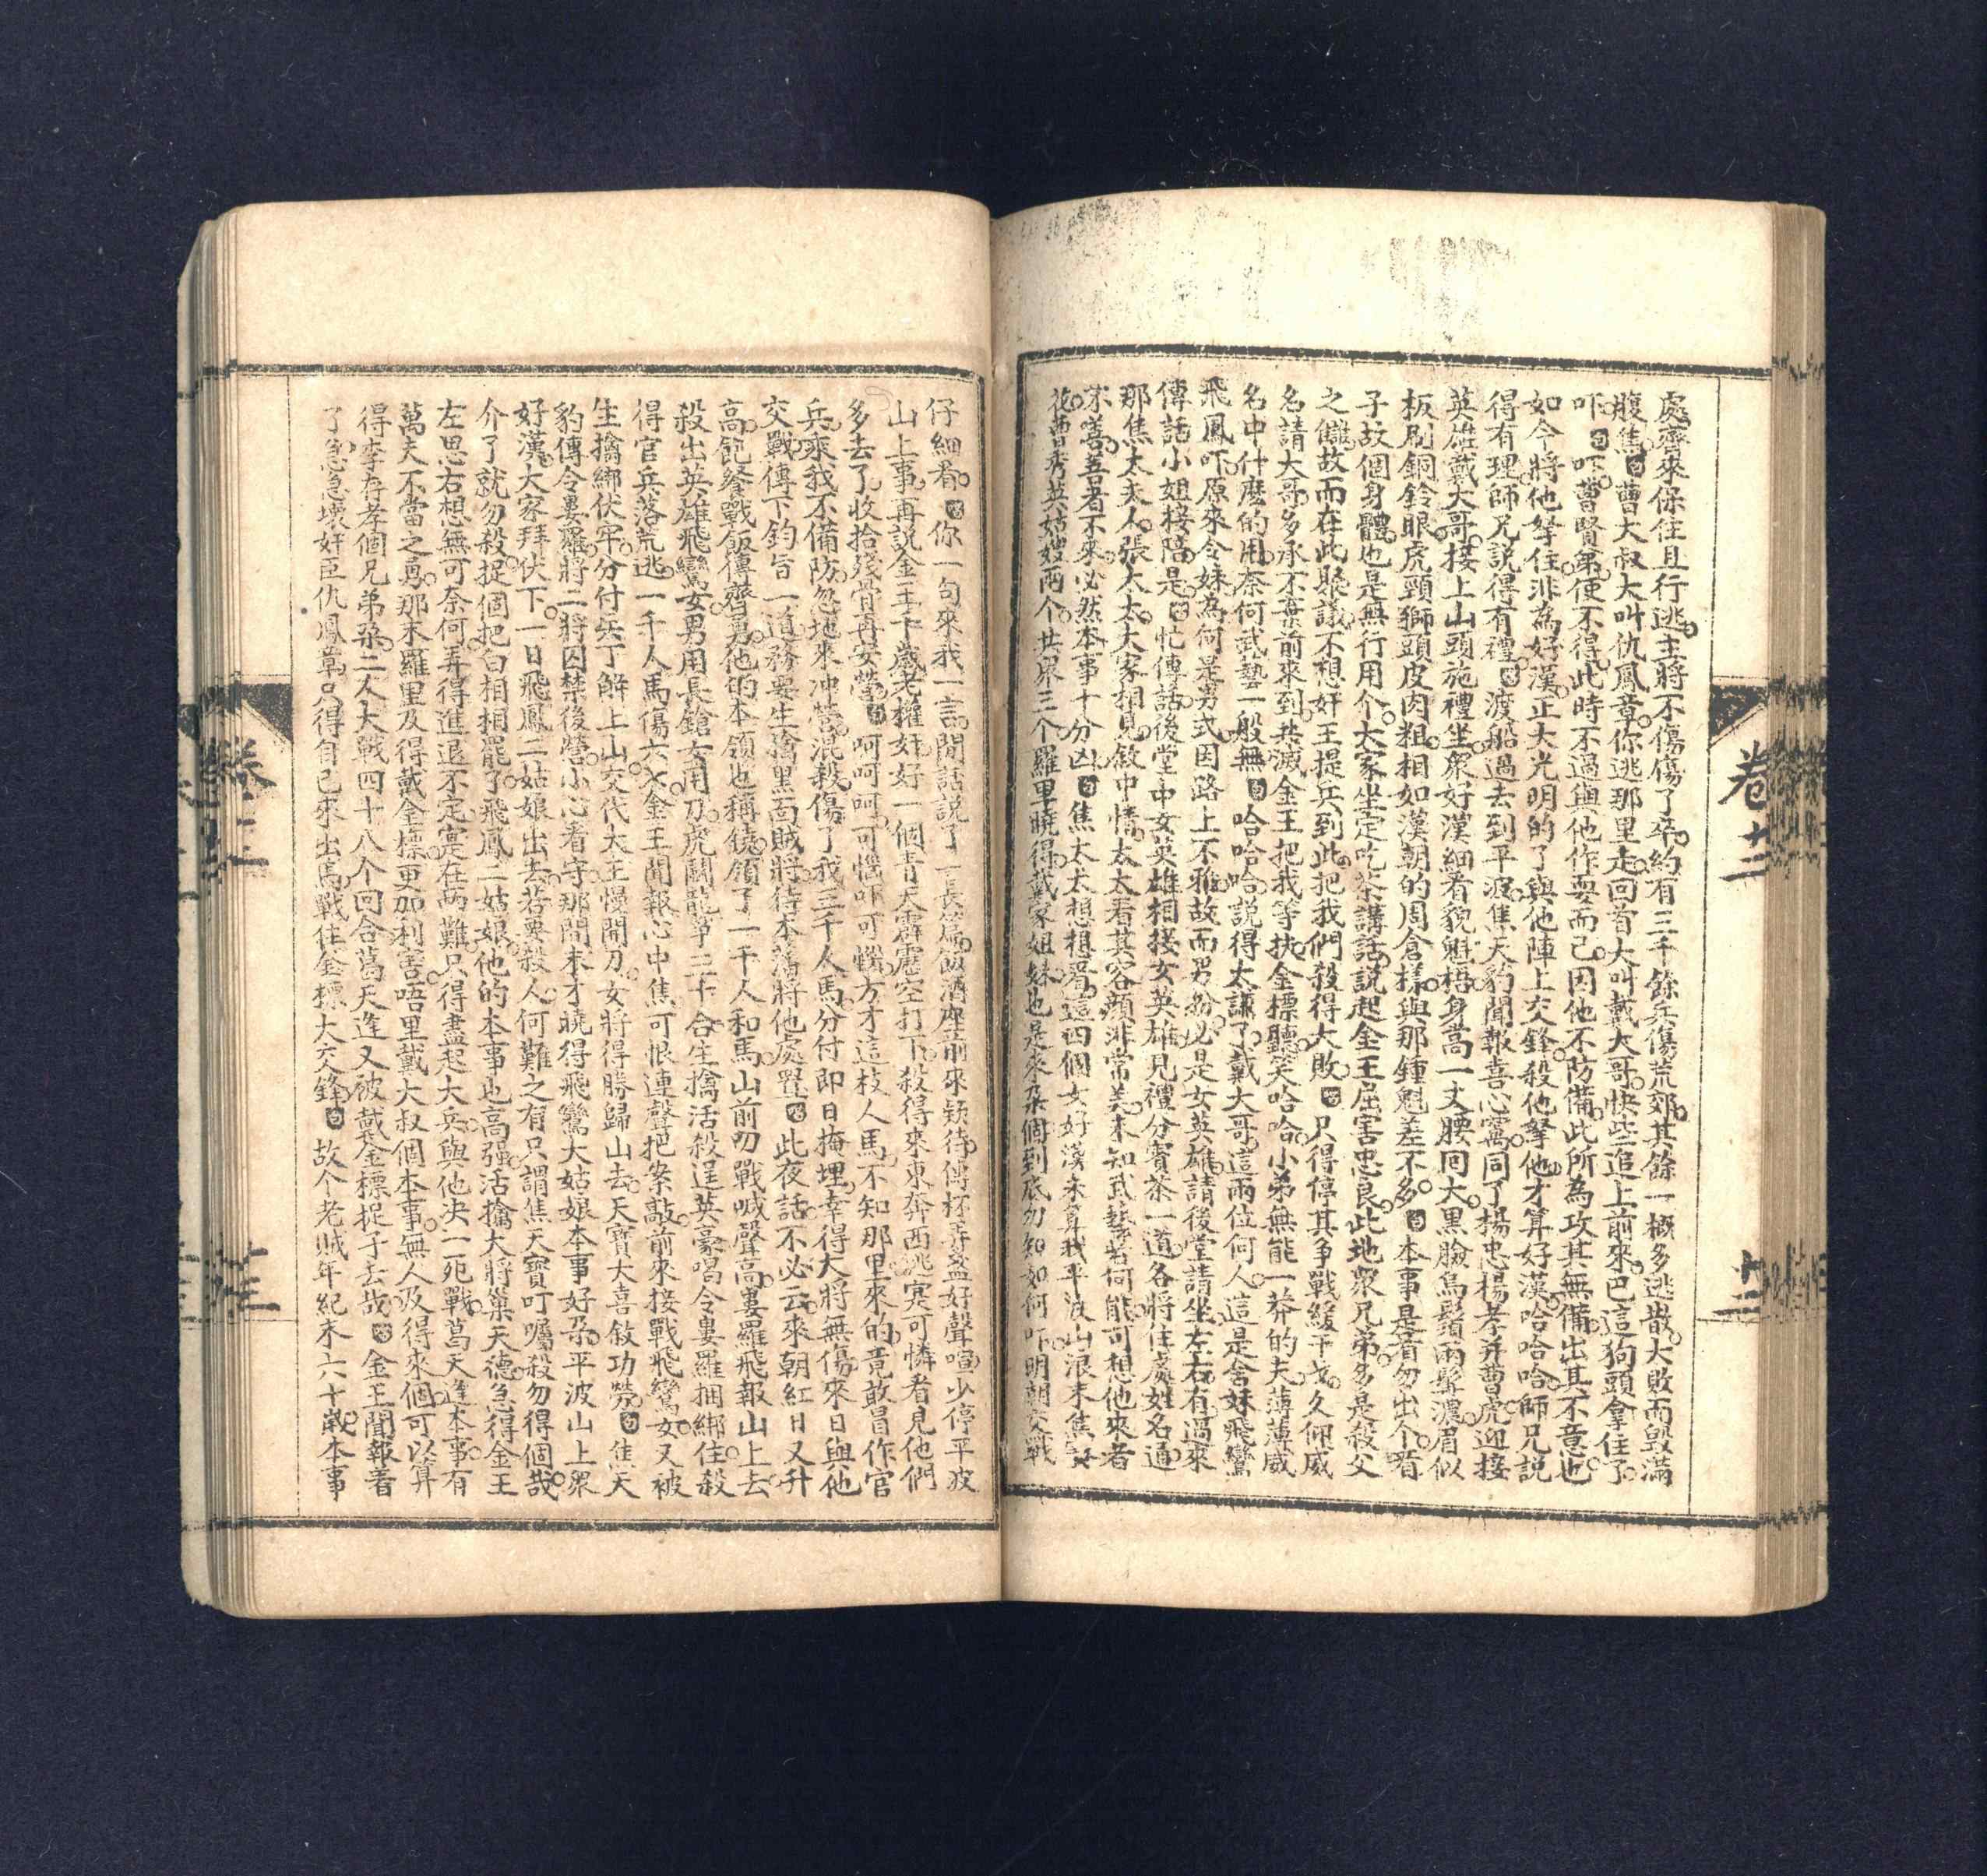 處齊來保住且行逃主將不傷傷了卒約有三千餘兵傷荒郊其餘一概多逃散大敗而毀滿
腹焦白曹大叔大叫仇鳳章你逃那里走回首大叫戴大哥快些追上前來巴這狗頭拿住了
吓白吓曹賢弟便不得此時不過與他作耍而已因他不防備此所為攻其無備出其不意也
如今將他拏住非為好漢正大光明的了與他陣上交鋒殺他拏他才算好漢哈哈哈師兄說
得有理師兄說得有禮白渡船過去到平波焦天豹聞報喜心窩同了楊忠楊孝并曹虎迎接
英雄戴大哥接上山頭施禮坐衆好漢細看貌魁梧身高一丈腰囘大黑臉烏鬚兩髩濃眉似
板刷銅鈴眼虎頸獅頭皮肉粗相如漢朝的周倉樣與那鍾魁差不多白本事是看勿出个看
子故個身體也是無行用个大家坐定吃茶講話說起金王屈害忠良此地衆兄弟多是殺父
之讎故而在此聚議不想奸王提兵到此把我們殺得大敗白只得停其爭戰緩干戈久仰威
名請大哥多承不棄前來到共滅金王把我等扶金標聽笑哈哈小弟無能一莽的夫薄薄威
名中什麽的用奈何武藝一般無白哈哈哈說得太謙了戴大哥這兩位何人這是舍妹飛鸞
飛鳳吓原來令妹為何是男式因路上不雅故而男扮必是女英雄請後堂請坐左右有過來
傳話小姐接陪是白忙傳話後堂中女英雄相接女英雄見禮分賓茶一道各將住處姓名通
那焦太夫人張太太大家相見敘中情太太看其容顏非常美未知武藝若何能可想他來者
不善善者不來必然本事十分凶白焦太太想想看這四個女好漢未算我平波山浪末焦
花曹秀英姑嫂兩个共衆三个羅里曉得戴家姐妹也是來朶個到底勿知如何吓明朝交戰
卷十二
十二
仔細看白你一句來我一言閒話說了一長篇飯酒座前來欵待傳杯弄盞好聲喧少停平波
山上事再說金王千歲老權奸好一個青天霹靂空打下殺得來東奔西逃寔可憐看見他們
多去了收拾殘骨再安營白呵呵呵可惱吓可惱方才這枝人馬不知那里來的竟敢冒作官
兵乘我不備防忽地來冲營混殺傷了我三千人馬分付即日掩埋幸得大將無傷來日與他
交戰傳下鈞旨一道務要生擒黑面賊將待本藩將他處置白此夜話不必云來朝紅日又升
高飽餐戰飯傳齊勇他的本領也稱饒領了一千人和馬山前叨戰喊聲高嘍羅飛報山上去
殺出英雄飛鸞女男用長鎗女用刀虎鬭龍爭三十合生擒活殺逞英豪唱令嘍羅捆綁住殺
得官兵落荒逃一千人馬傷六七金王聞報心中焦可恨連聲把案敲前來接戰飛鸞女又被
生擒綁伏牢分付兵丁解上山交代大王慢開刀女將得勝歸山去天寶大喜敘功勞白焦天
豹傳令嘍羅將二將囚禁後營小心看守那間末才曉得飛鸞大姑娘本事好朶平波山上衆
好漢大家拜伏下一日飛鳳二姑娘出去若要殺人何難之有只謂焦天寶叮囑殺勿得個哉
介了就勿殺捉個把白相相罷了飛鳳二姑娘他的本事也高強活擒大將巢天德急得金王
左思右想無可奈何弄得進退不定寔在兩難只得盡起大兵與他决一死戰葛天逢本事有
萬夫不當之勇那末羅里及得戴金標更加利害唔里戴大叔個本事無人及得來個可以算
得李存孝個兄弟朶二人大戰四十八个回合葛天逢又被戴金標捉子去哉白金王聞報着
了急急壞奸臣仇鳳章只得自已來出馬戰住金標大交鋒白故个老賊年紀末六十歲本事
卷十二